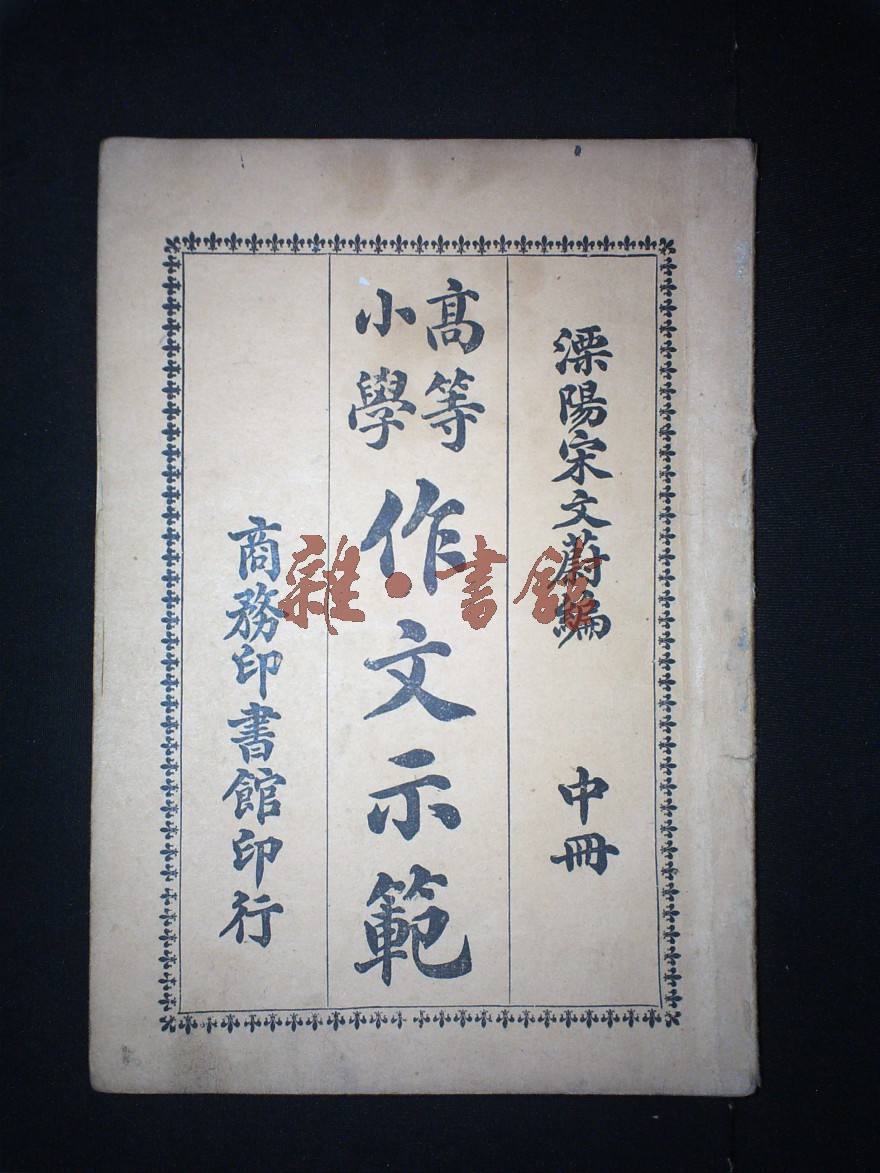 溧陽宋文蔚編 中冊
高等
小學
作文示範
商務印書館印行
雜·書館